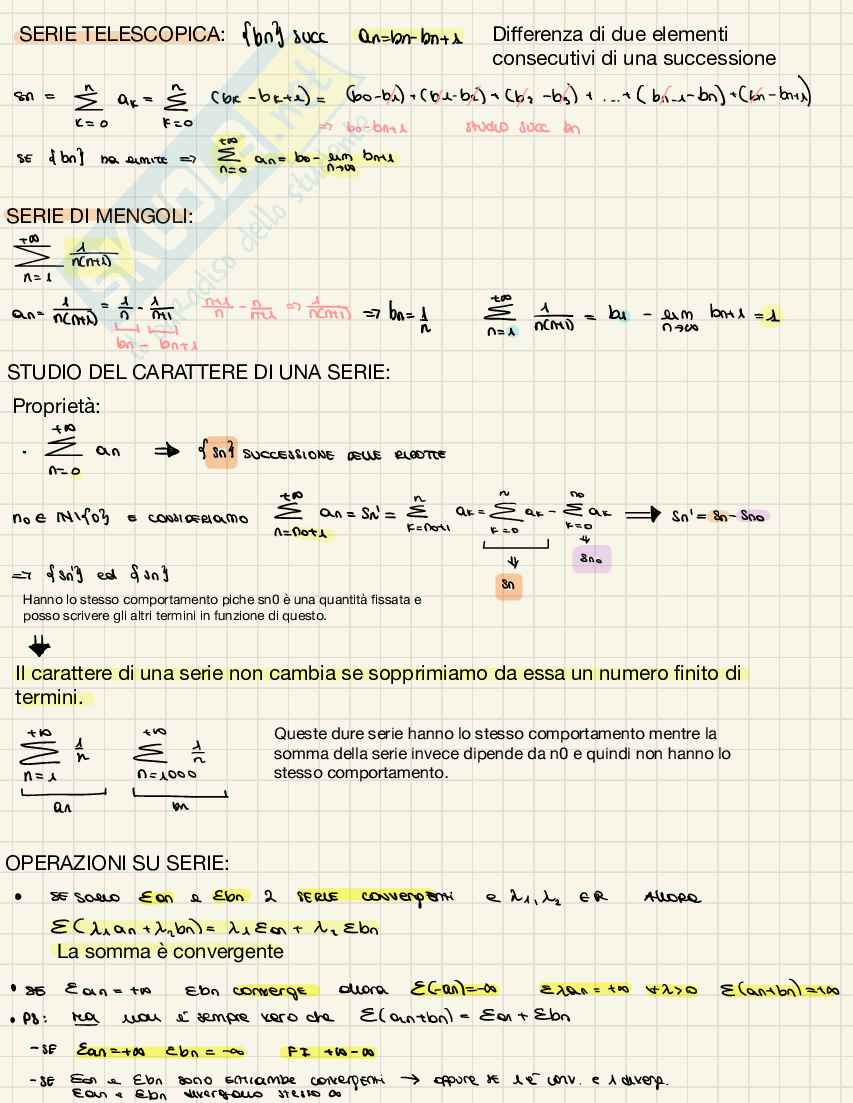 SERIE TELESCOPICA: {bn} succ an=bn-bn+1 Differenza di due elementi
consecutivi di una successione
sn = n∑k=0 ak = n∑k=0 (bk-bk+1) = (b0-b1)+(b1-b2)+(b2-b3)+...+(bn-1-bn)+(bn-bn+1)
=> b0-bn+1 STUDIO SUCC bn
SE {bn} ha limite => +∞∑n=0 an = b0 - lim n→∞ bn+1
SERIE DI MENGOLI:
+∞∑n=1 1/n(n+1)
an = 1/n(n+1) = 1/n - 1/n+1 n+1/n - n/n+1 => 1/n(n+1) => bn = 1/n +∞∑n=1 1/n(n+1) = b1 - lim n→∞ bn+1 = 1
bn - bn+1
STUDIO DEL CARATTERE DI UNA SERIE:
Proprietà:
· +∞∑n=0 an => {sn} SUCCESSIONE DELLE RIDOTTE
n0 ∈ N\{0} e consideriamo +∞∑n=n0+1 an = Sn' = n∑k=n0+1 ak = n∑k=0 ak - n0∑k=0 ak => Sn' = Sn - Sn0
Sn Sn0
=> {Sn'} ed {Sn}
Hanno lo stesso comportamento piche sn0 è una quantità fissata e
posso scrivere gli altri termini in funzione di questo.
Il carattere di una serie non cambia se sopprimiamo da essa un numero finito di
termini.
+∞∑n=1 1/n +∞∑n=1000 1/n
an bn
Queste dure serie hanno lo stesso comportamento mentre la
somma della serie invece dipende da n0 e quindi non hanno lo
stesso comportamento.
OPERAZIONI SU SERIE:
• SE SONO Σan e Σbn 2 SERIE CONVERGENTI e λ1, λ2 ∈ R ALLORA
Σ(λ1an+λ2bn) = λ1Σan + λ2Σbn
La somma è convergente
• SE Σan=+∞ Σbn converge allora Σ(-an)=-∞ Σλan=+∞ ∀λ>0 Σ(an+bn)=+∞
• PS: ma non è sempre vero che Σ(an+bn) = Σan + Σbn
- SE Σan=+∞ Σbn=-∞ FI +∞-∞
- SE Σan e Σbn sono entrambe convergenti → oppure se 1 è conv. e 1 diverg.
Σan e Σbn divergono stesso ∞
SKUOLA.net
il paradiso dello studente